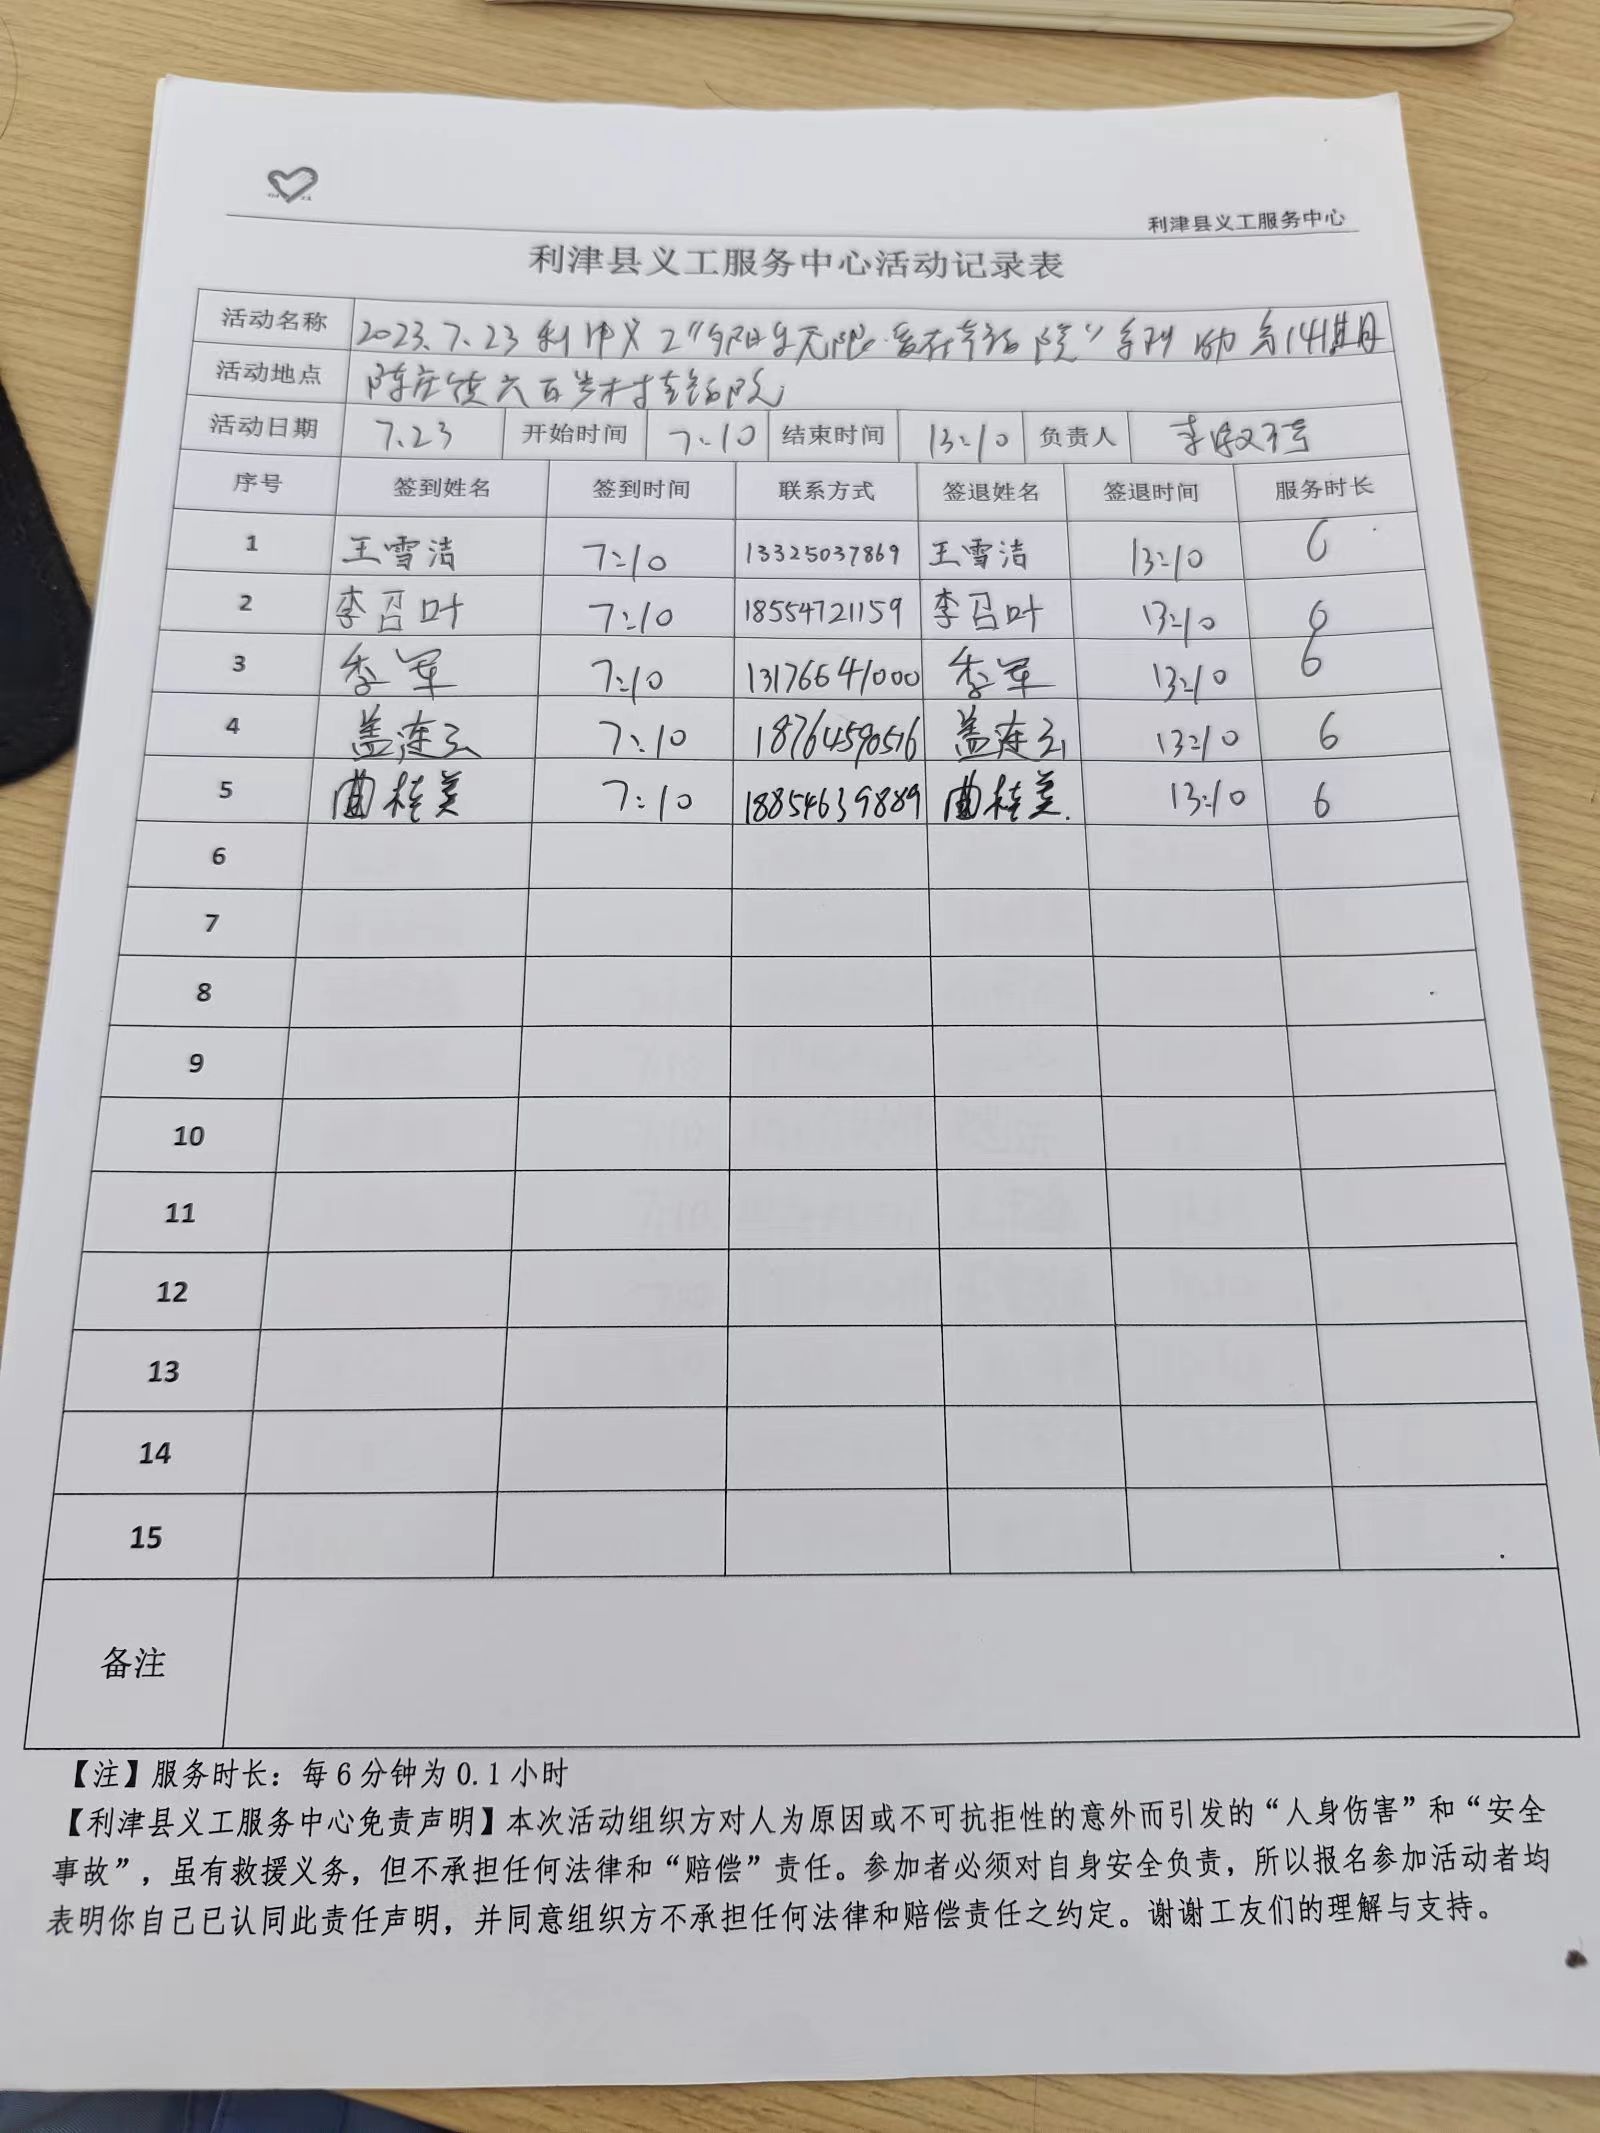 利津县义工服务中心
利津县义工服务中心活动记录表
活动名称 2023.7.23 利津义工“夕阳乐无限·爱在幸福院”系列活动 第141期
活动地点 陈庄镇六百步村幸福院
活动日期 7.23 开始时间 7:10 结束时间 13:10 负责人 李
序号 签到姓名 签到时间 联系方式 签退姓名 签退时间 服务时长
1 王雪洁 7:10 13325037869 王雪洁 13:10 6
2 李召叶 7:10 18554721159 李召叶 13:10 6
3 李军 7:10 13176641000 李军 13:10 6
4 盖连云 7:10 18764590516 盖连云 13:10 6
5 曲桂美 7:10 18854639889 曲桂美. 13:10 6
6
7
8
9
10
11
12
13
14
15
备注
【注】服务时长：每6分钟为0.1小时
【利津县义工服务中心免责声明】本次活动组织方对人为原因或不可抗拒性的意外而引发的“人身伤害”和“安全
事故”，虽有救援义务，但不承担任何法律和“赔偿”责任。参加者必须对自身安全负责，所以报名参加活动者均
表明你自己已认同此责任声明，并同意组织方不承担任何法律和赔偿责任之约定。谢谢工友们的理解与支持。